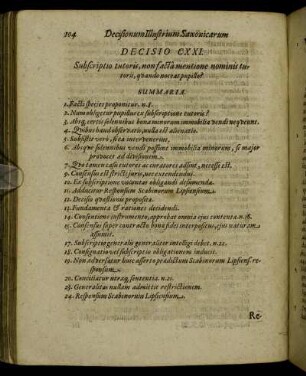 104 Decisionum Illustrium Saxonicarum
DECISIO CXXI.
Subscriptio tutoris, non facta mentione nominis tu-
torii, quando noceat pupillo?
SUMMARIA
1. Facti species proponitur. n. 1.
2. Num obligetur pupillus ex subscriptione tutoris?
3. Absq; certis solennibus bona minorum immobilia vendi nequeunt.
4. Quibus haud observatis, nulla est alienatio.
5. Subsistit verò, si ea intervenerint.
6. Absque solennibus vendi possunt immobilia minorum, si major
provocet ad divisionem.
7. Quo tamen casu tutores ac curatores adsint, necesse est.
9. Consensus est stricti juris, nec extendendus.
10. Ex subscriptione voluntas obligandi desumenda.
11. Adducitur Responsum Scabinorum Lipsiensium.
12. Decisio quæstionis proposita.
13. Fundamenta & rationes decidendi.
14. Consentiens instrumento, approbat omnia ejus contenta. n. 18.
15. Consensus super contractu bonæ fidei interpositus, ejus naturam
assumit.
17. Subscriptio generalis generaliter intelligi debet. n. 22.
18. Consignatio vel subscriptio obligationem inducit.
19. Non adversatur huic assertioni prædictum Scabinorum Lipsiens. re-
sponsum.
20. Conciliatur utraq; sententia. n. 21.
23. Generalitas nullam admittit restrictionem.
24. Responsum Scabinorum Lipsiensium.
Re-